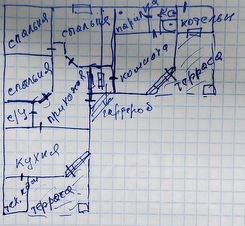 спальня
спальня
парилка
котельн
спальня
прихожая
комната
терраса
с/у
гардероб
кухня
тех. ком
терраса